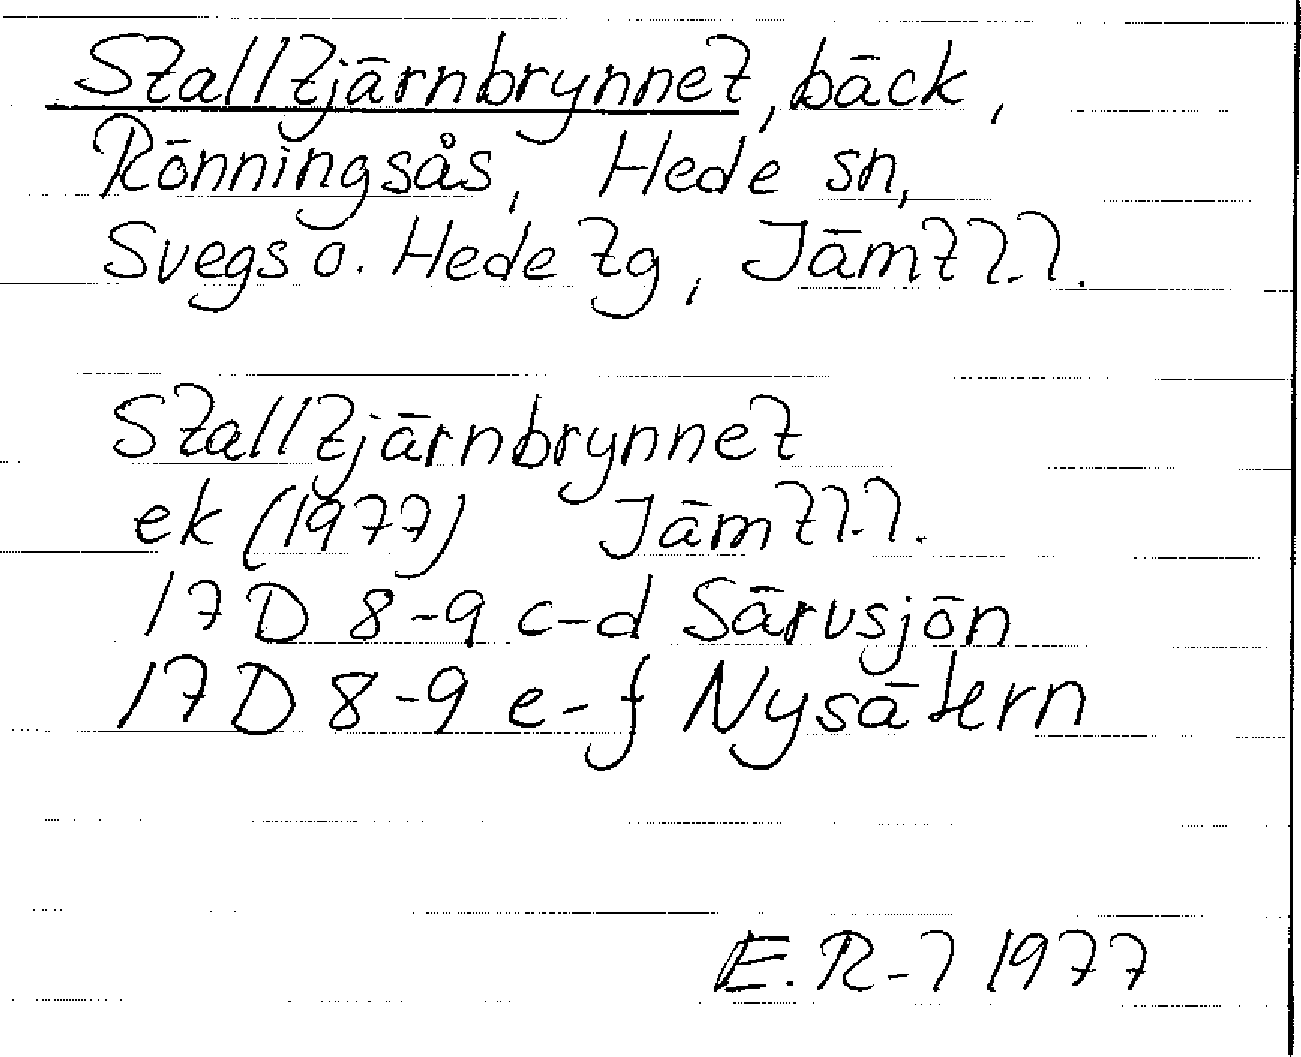 Stalltjärnbrynnet, bäck,
Rönningsås, Hede sn,
Svegs o. Hede tg, Jämtl.l.
Stalltjärnbrynnet
ek (1977) Jämtl.l.
17 D 8-9 c-d Särvsjön
17 D 8-9 e-f Nysätern
E.R-l 1977